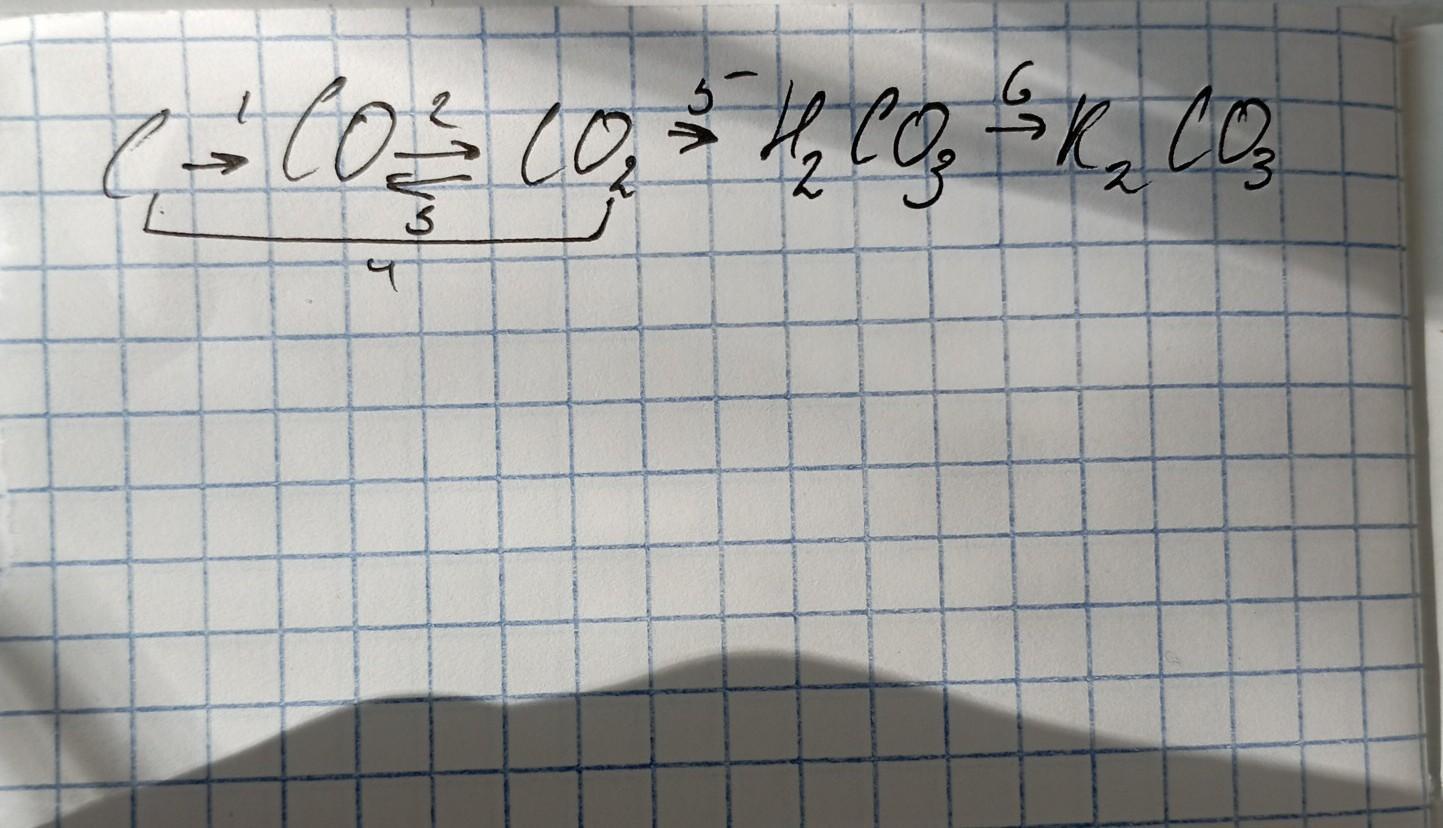 C →¹ CO ⇄² CO₂ →⁵ H₂CO₃ →⁶ K₂CO₃
3
4